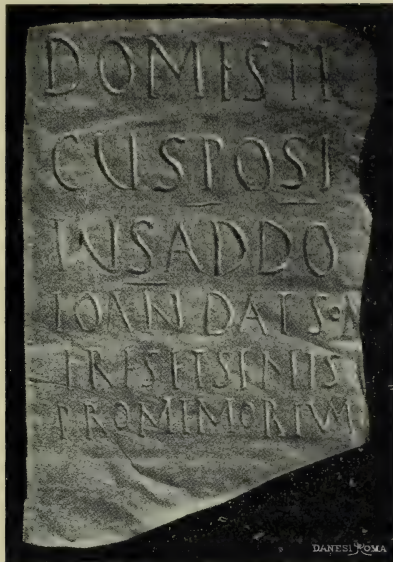 DOMESTI
CUSPOSI
IUSADDO
IOANDATSON
TRISETSENTIS
PROMEMORIUM
DANESI ROMA